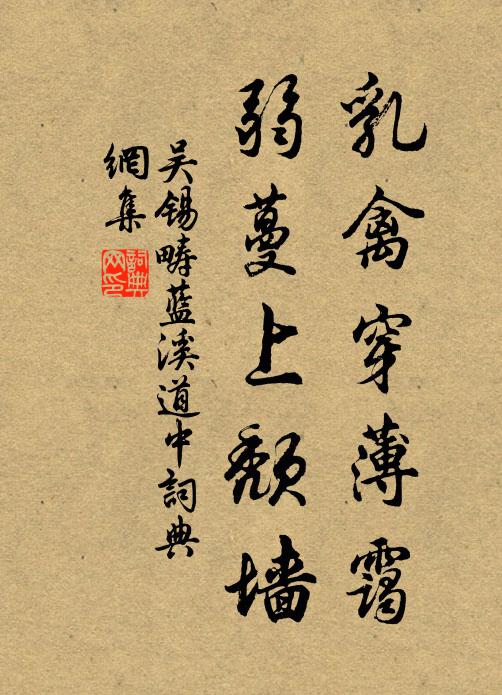 乳禽穿薄靄
弱蔓上頹墙
吴锡疇藍溪道中詞典
網集
詞典网印